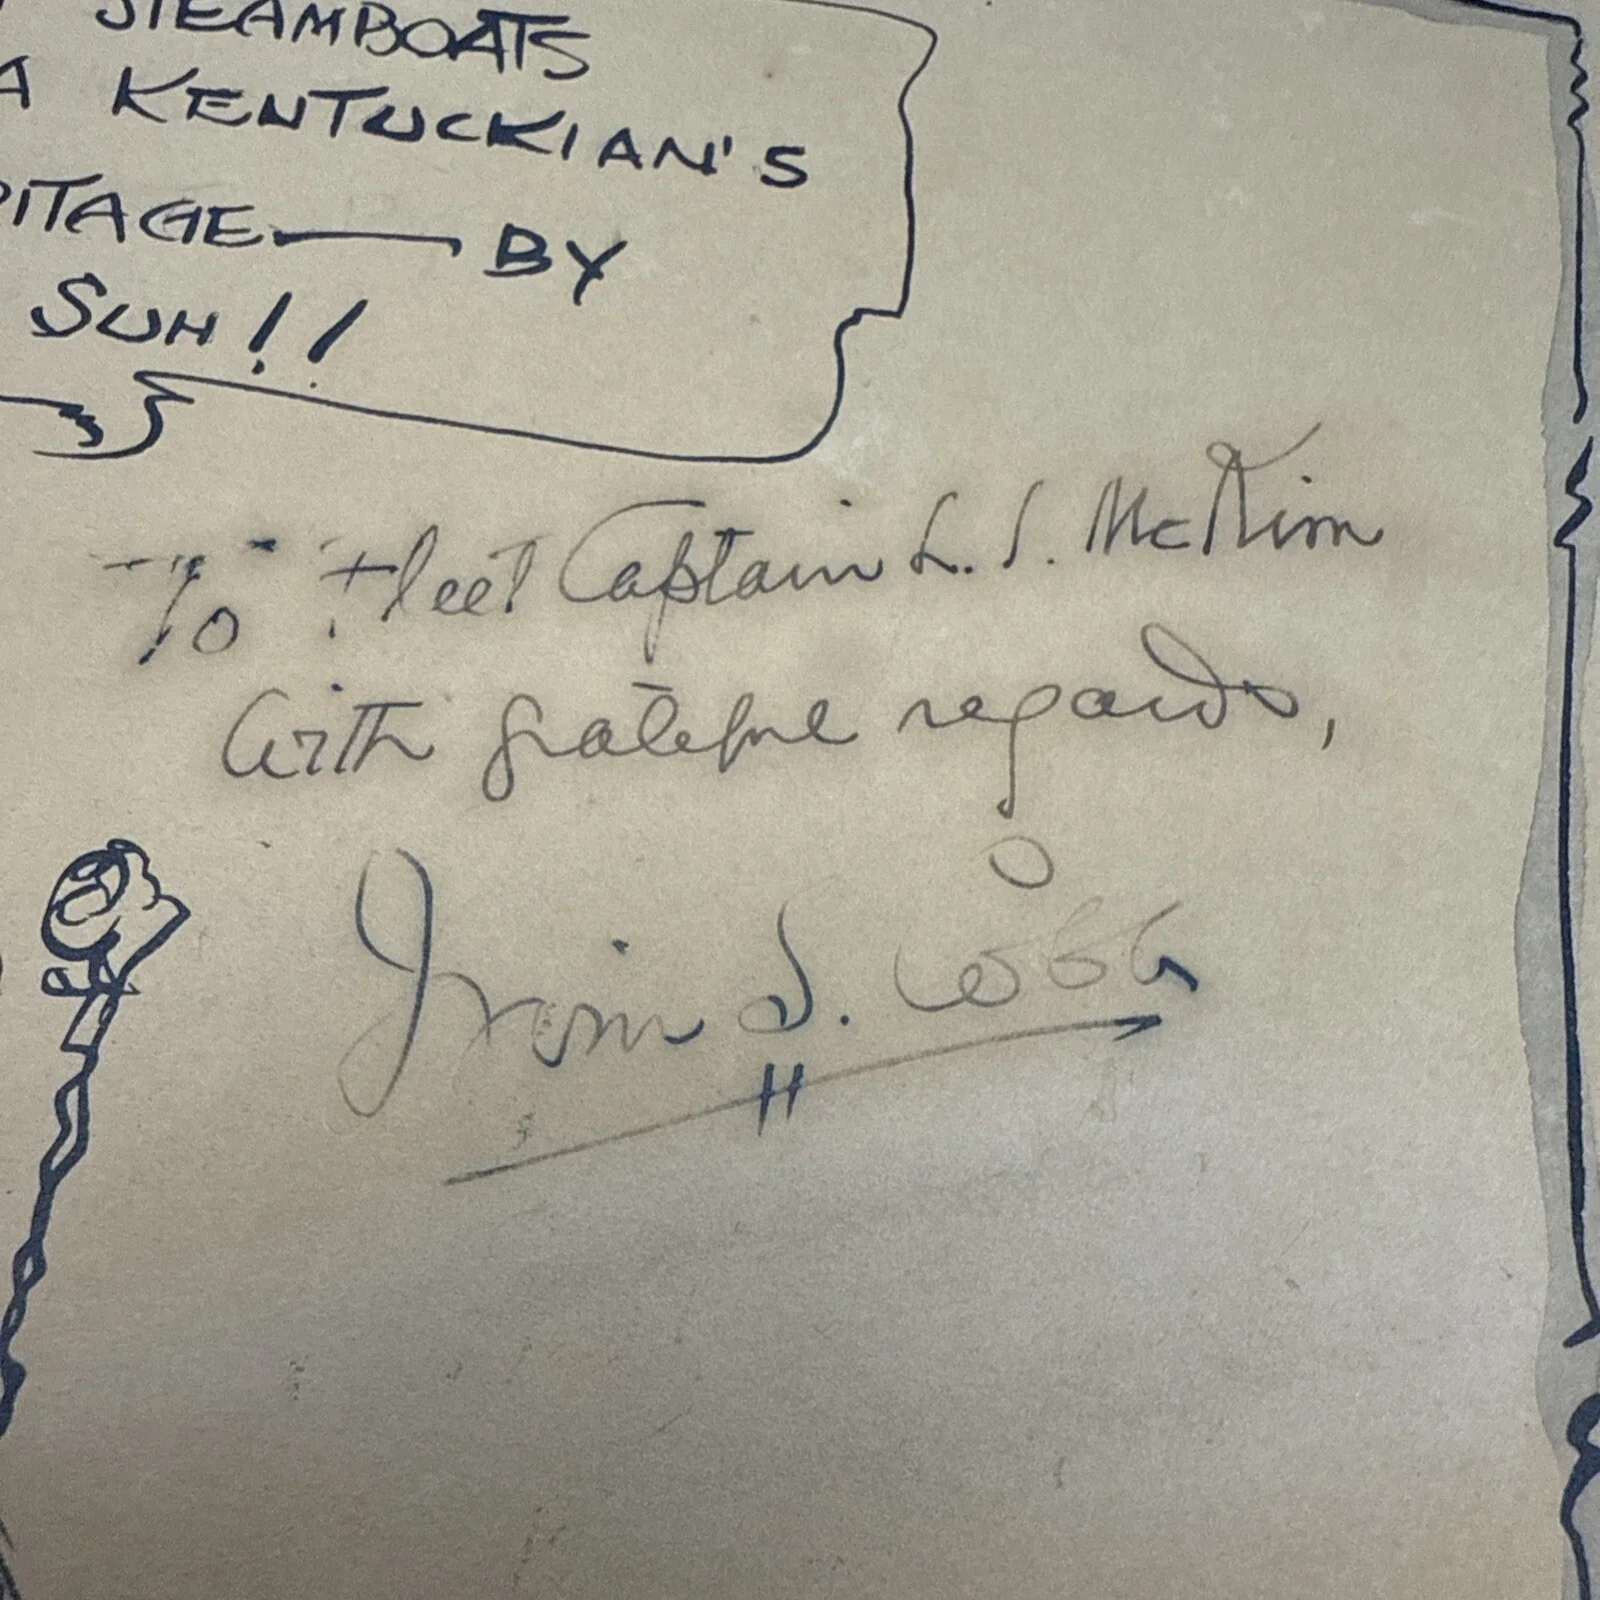 STEAMBOATS
A KENTUCKIAN'S
RITAGE — BY
SUH!!
To Fleet Captain L. S. McKim
With grateful regards,
Irvin S. Cobb